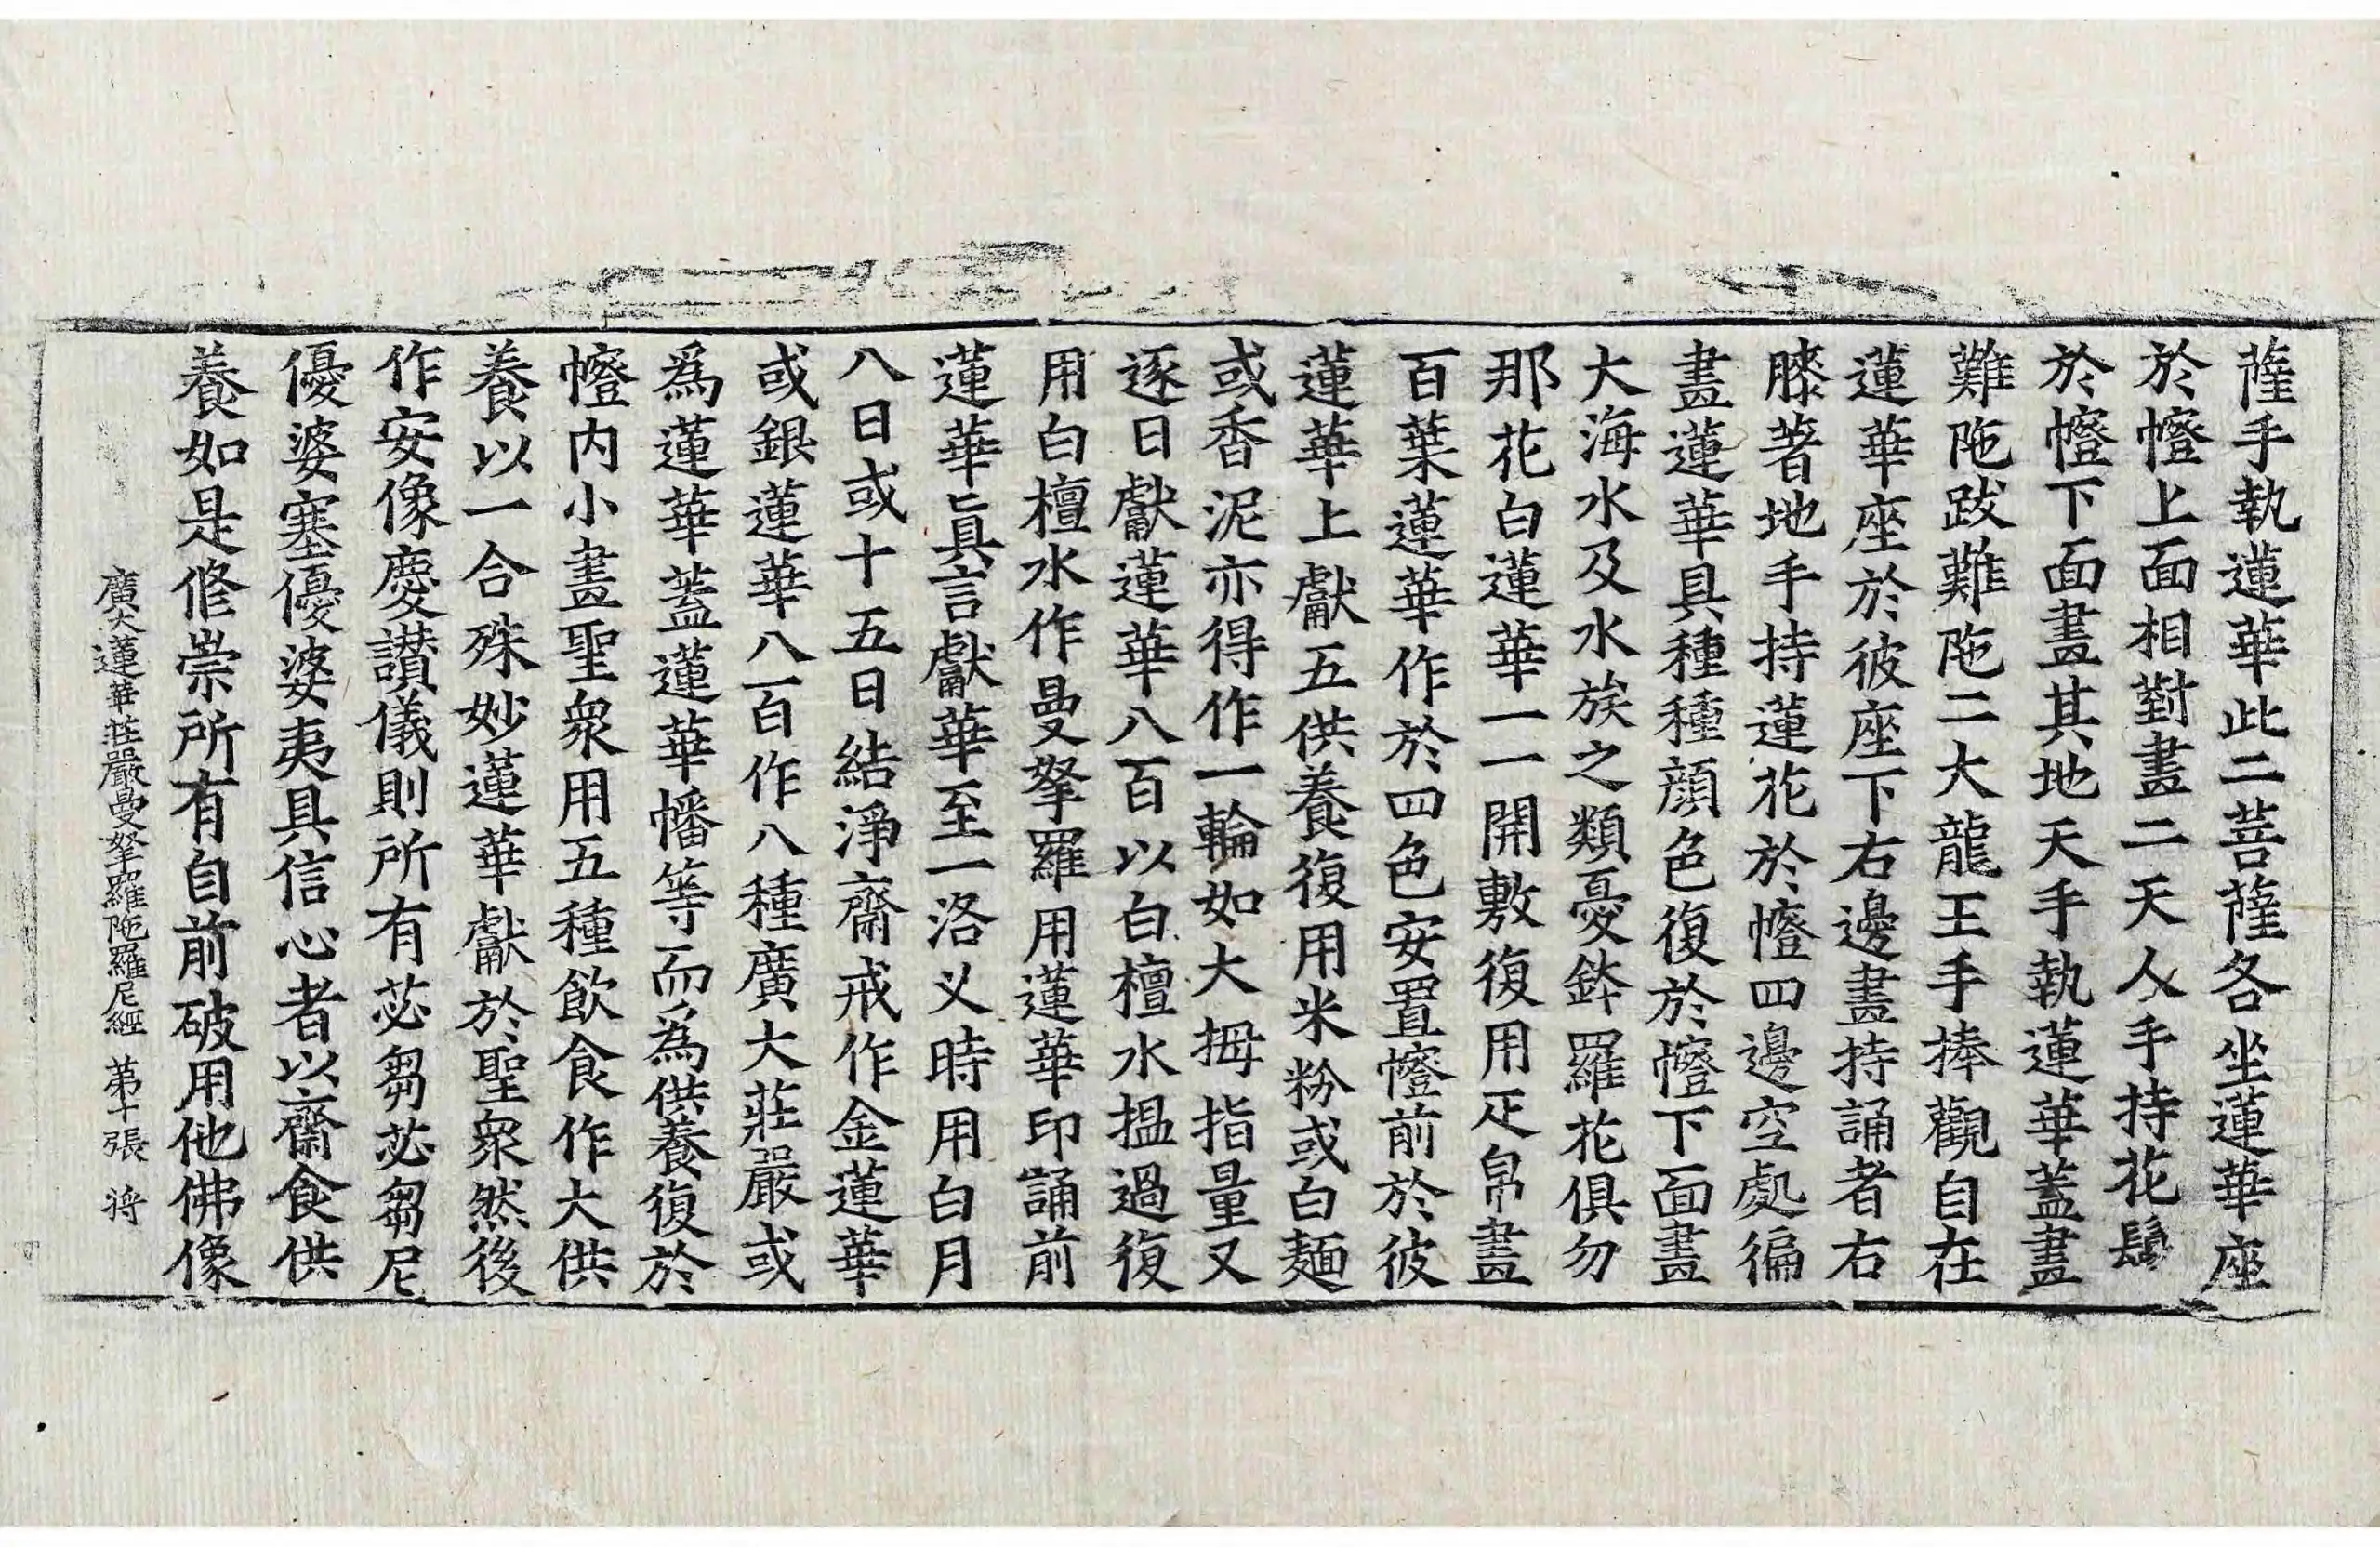 薩手執蓮華此二菩薩各坐蓮華座
於幢上面相對畫二天人手持花鬘
於幢下面畫其地天手執蓮華蓋畫
難陁跋難陁二大龍王手捧觀自在
蓮華座於彼座下右邊畫持誦者右
膝著地手持蓮花於幢四邊空處徧
畫蓮華具種種顔色復於幢下面畫
大海水及水族之類憂鉢羅花俱勿
那花白蓮華一一開敷復用疋帛畫
百葉蓮華作於四色安置幢前於彼
蓮華上獻五供養復用米粉或白麵
或香泥亦得作一輪如大拇指量又
逐日獻蓮華八百以白檀水搵過復
用白檀水作曼拏羅用蓮華印誦前
蓮華眞言獻華至一洛义時用白月
八日或十五日結淨齋戒作金蓮華
或銀蓮華八百作八種廣大莊嚴或
爲蓮華蓋蓮華幡等而爲供養復於
幢内小畫聖衆用五種飲食作大供
養以一合殊妙蓮華獻於聖衆然後
作安像慶讃儀則所有苾芻苾芻尼
優婆塞優婆夷具信心者以齋食供
養如是修崇所有自前破用他佛像
廣大蓮華莊嚴曼拏羅陁羅尼經 第十張 将